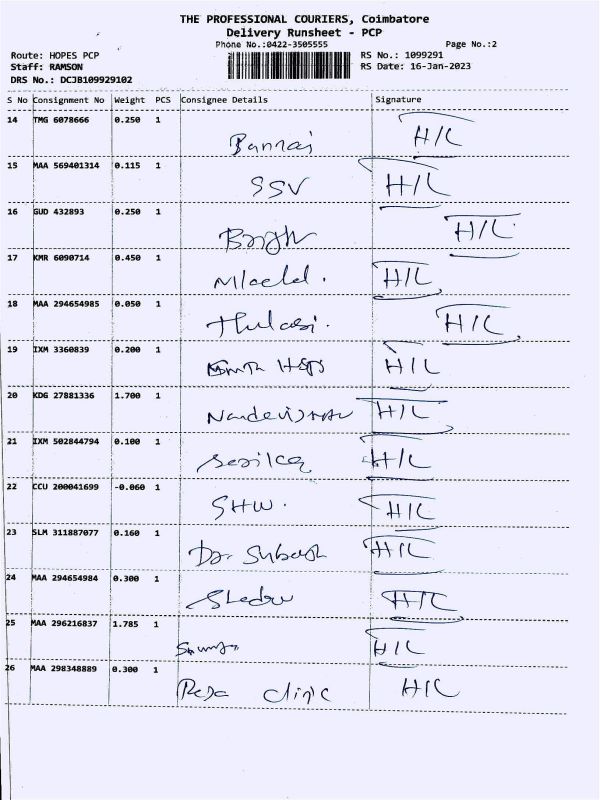 THE PROFESSIONAL COURIERS, Coimbatore
Delivery Runsheet - PCP
Phone No.:0422-3505555
Page No.:2
Route: HOPES PCP
Staff: RAMSON
DRS No.: DCJB109929102
RS No.: 1099291
RS Date: 16-Jan-2023
S No Consignment No Weight PCS Consignee Details Signature
14 TMG 6078666 0.250 1
H/L
15 MAA 569401314 0.115 1
SSV H/L
16 GUD 432893 0.250 1
H/L
17 KMR 6090714 0.450 1
H/L
18 MAA 294654985 0.050 1
Thulasi. H/L
19 IXM 3360839 0.200 1
H/L
20 KDG 27881336 1.700 1
H/L
21 IXM 502844794 0.100 1
H/L
22 CCU 200041699 -0.060 1
SHW. H/L
23 SLM 311887077 0.160 1
Dr. Subash H/L
24 MAA 294654984 0.300 1
H/L
25 MAA 296216837 1.785 1
H/L
26 MAA 298348889 0.300 1
clinic H/L